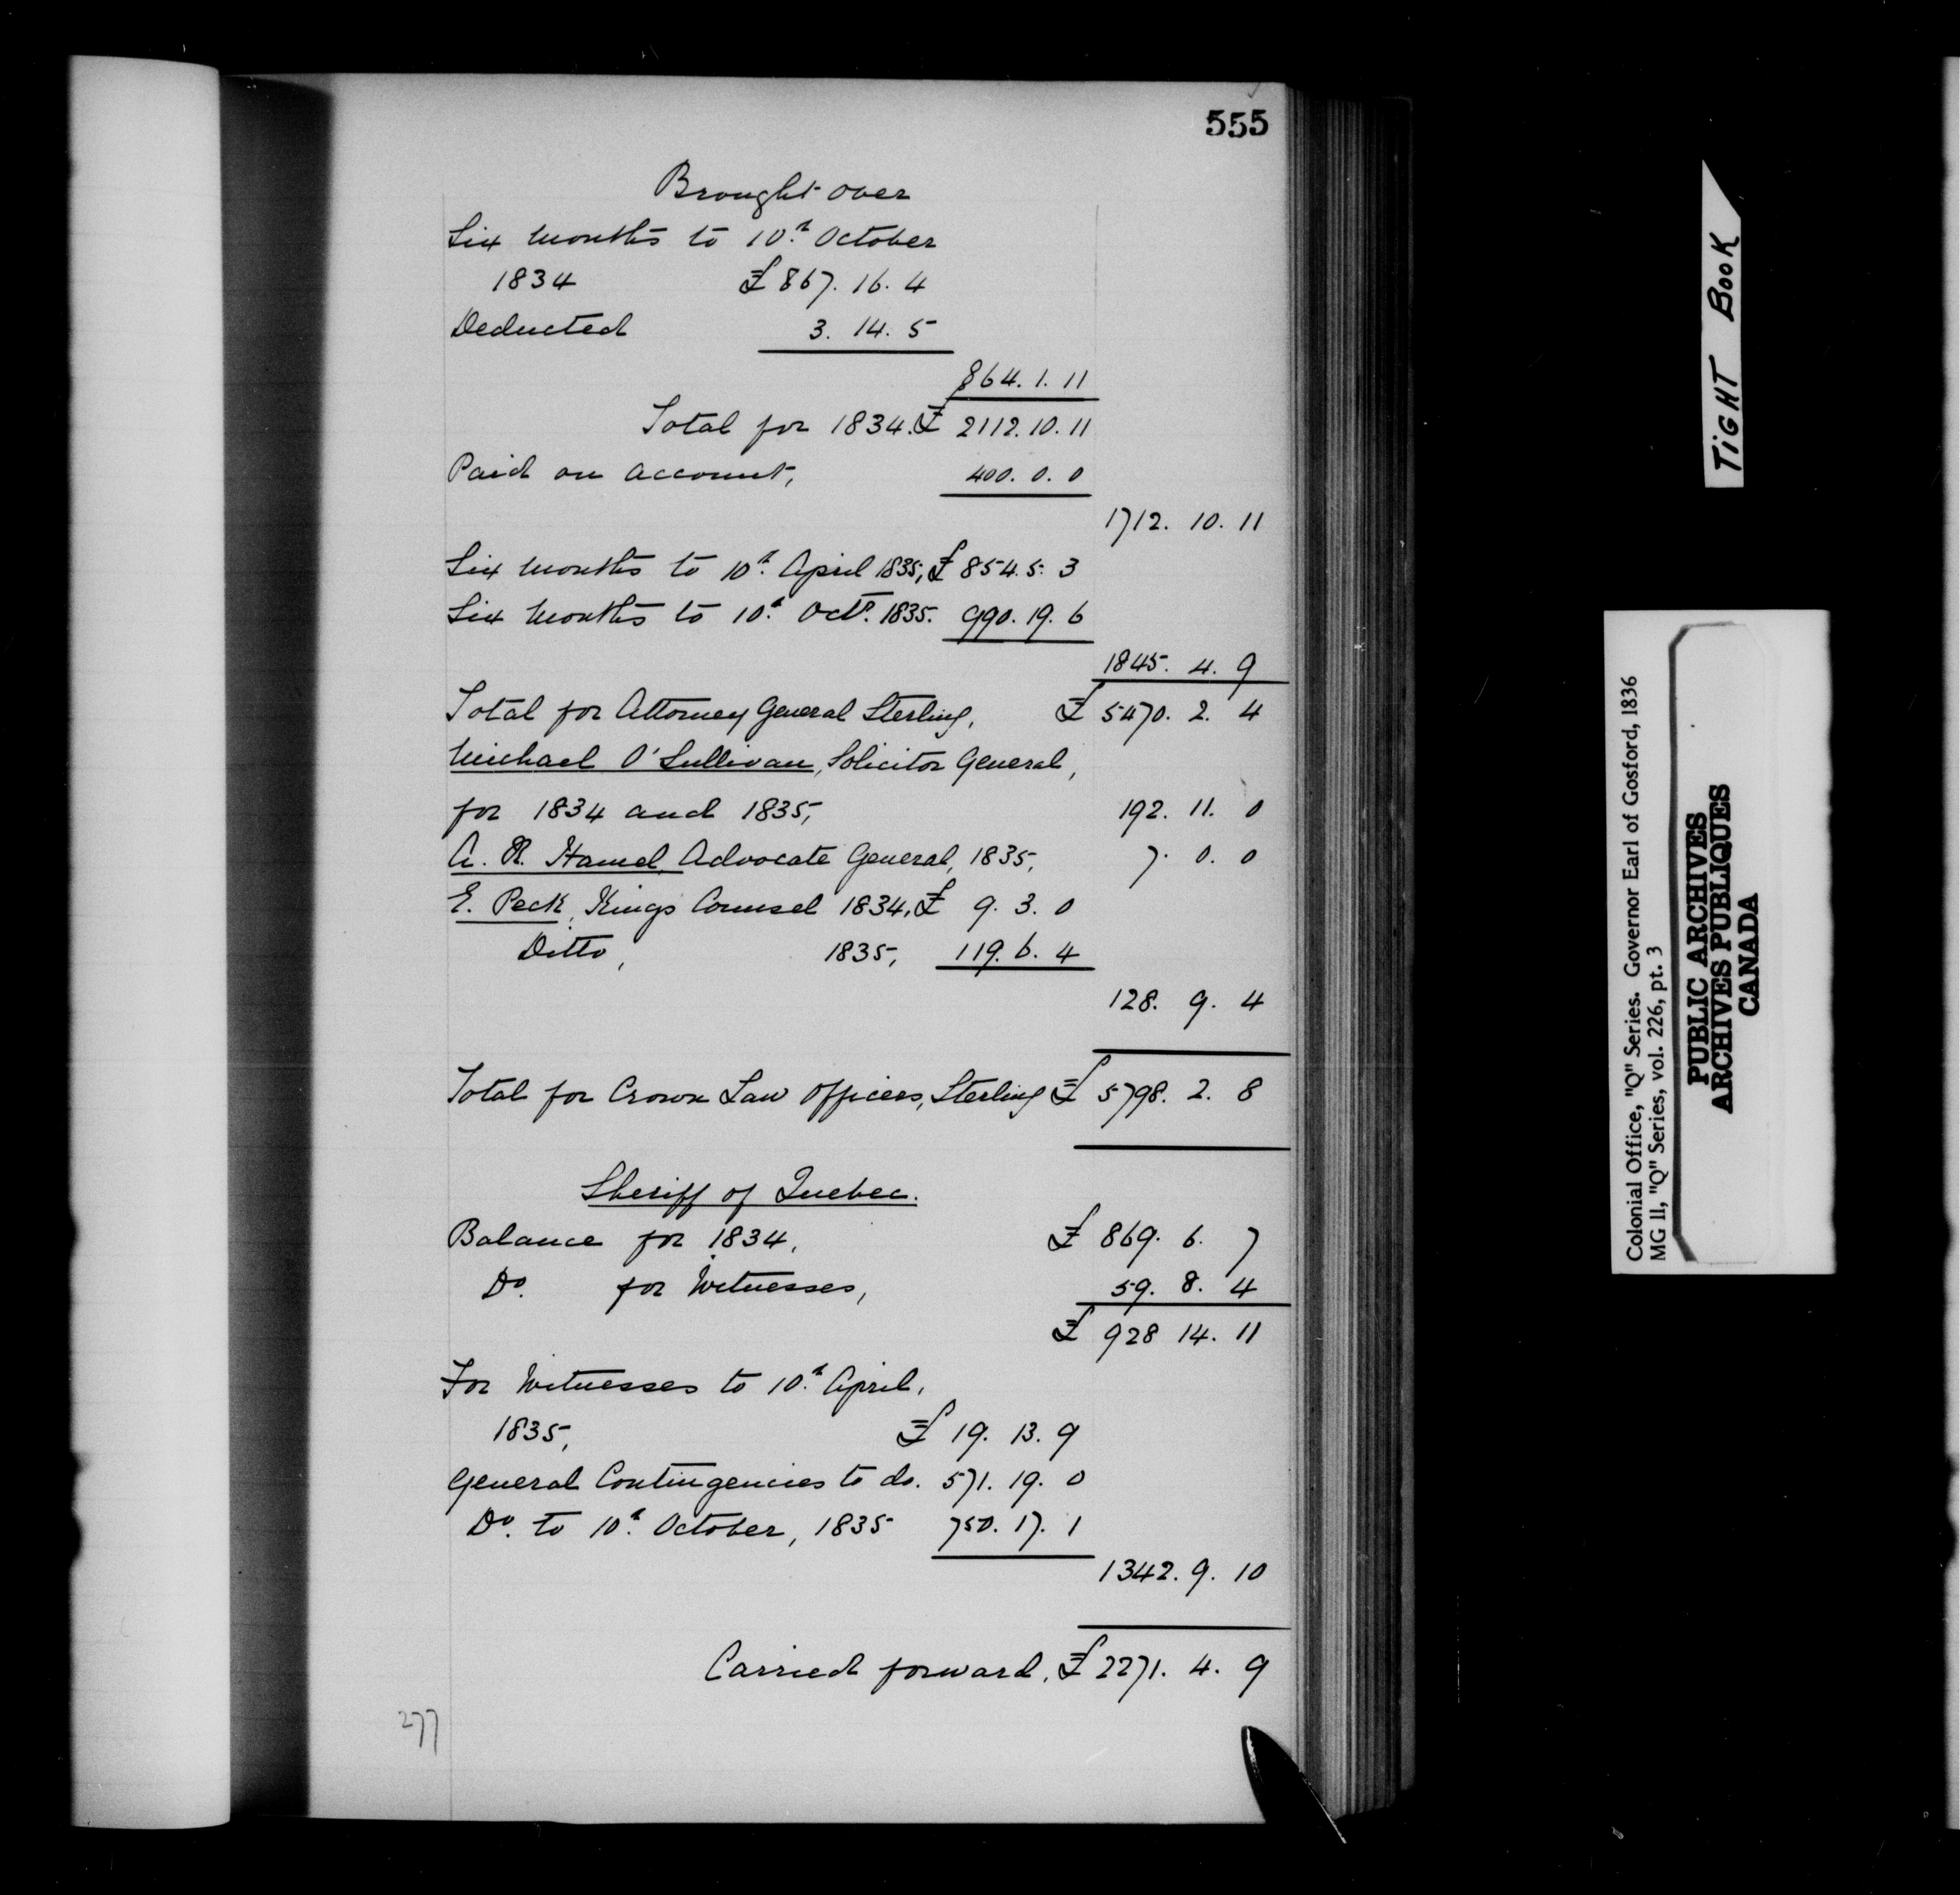 555
Brought over
Six months to 10th October
1834 £ 867. 16. 4
Deducted 3. 14. 5
864. 1. 11
Total for 1834. £ 2112. 10. 11
Paid on account, 400. 0. 0
1712. 10. 11
Six months to 10th April 1835, £ 854. 5. 3
Six months to 10th Octr. 1835. 990. 19. 6
1845. 4. 9
Total for Attorney General Sterling, £ 5470. 2. 4
Michael O'Sullivan, Solicitor General,
for 1834 and 1835, 192. 11. 0
A. R. Hamel, Advocate General, 1835, 7. 0. 0
E. Peck, Kings Counsel 1834, £ 9. 3. 0
Ditto, 1835, 119. 6. 4
128. 9. 4
Total for Crown Law Officers, Sterling £ 5798. 2. 8
Sheriff of Quebec.
Balance for 1834, £ 869. 6. 7
Do. for Witnesses, 59. 8. 4
£ 928 14. 11
For Witnesses to 10th April,
1835, £ 19. 13. 9
General Contingencies to do. 571. 19. 0
Do. to 10th October, 1835 750. 17. 1
1342. 9. 10
Carried forward, £ 2271. 4. 9
277
TIGHT BOOK
Colonial Office, "Q" Series. Governor Earl of Gosford, 1836
MG 11, "Q" Series, vol. 226, pt. 3
PUBLIC ARCHIVES
ARCHIVES PUBLIQUES
CANADA